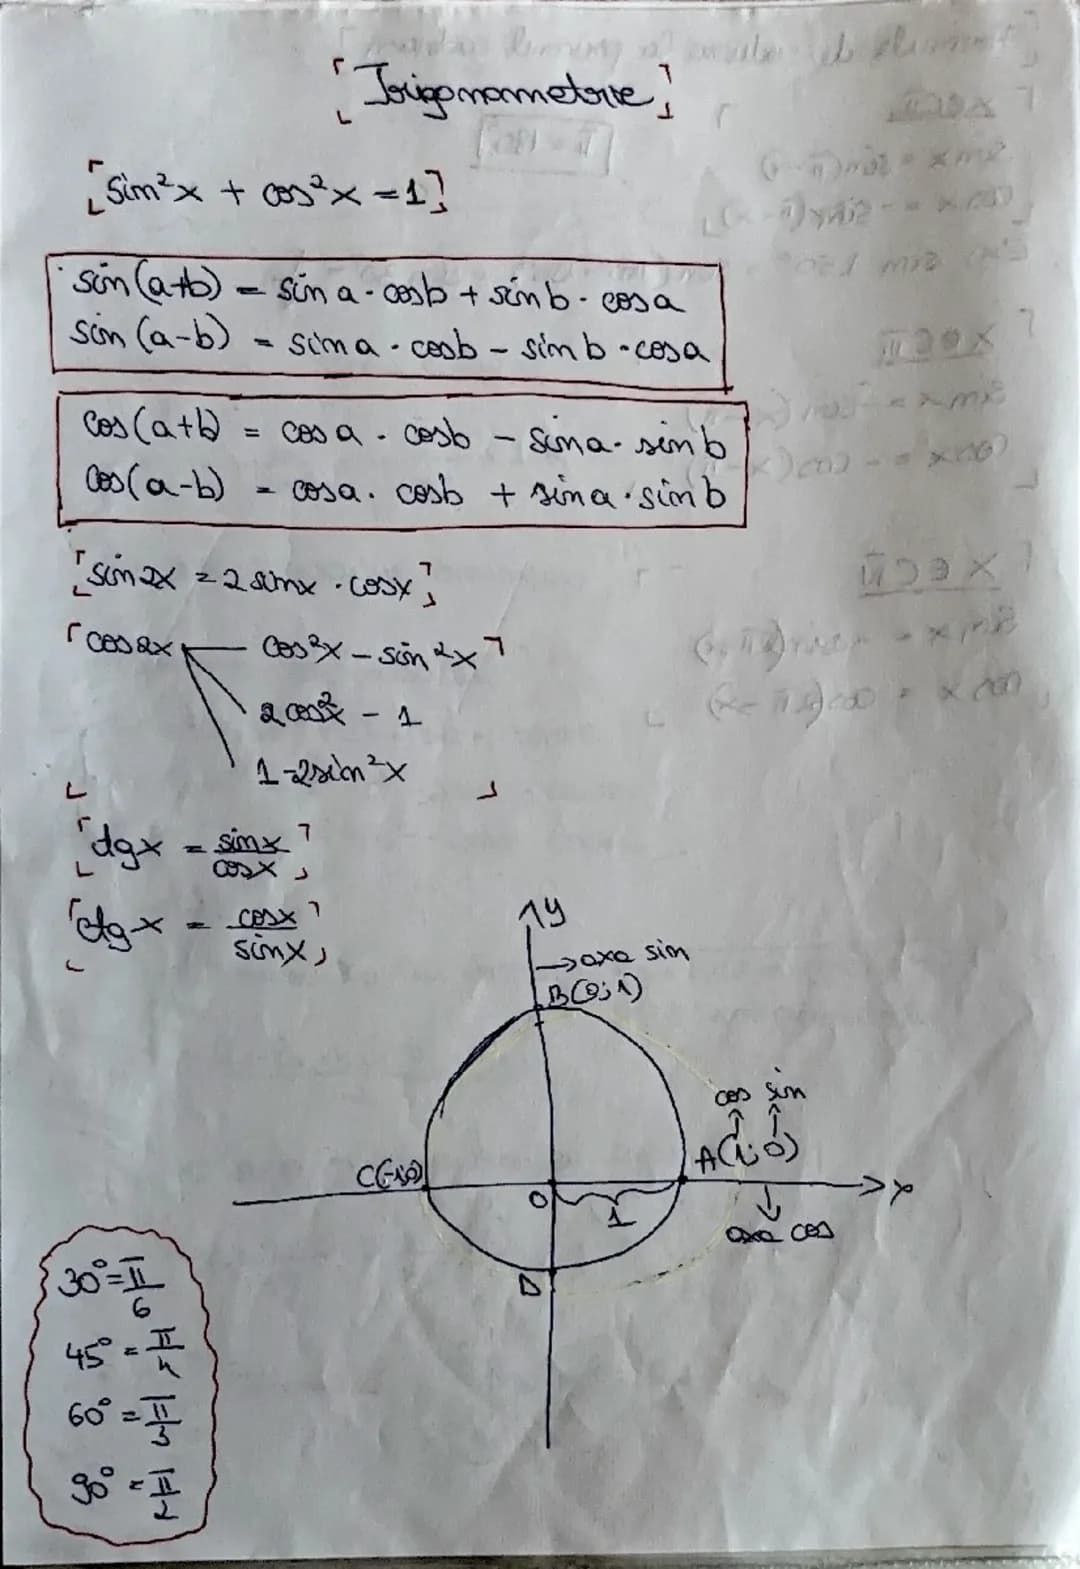 Trigonometrie
sin²x + cos²x = 1
sin(a+b) = sin a · cos b + sin b · cos a
sin(a-b) = sin a · cos b - sin b · cos a
cos(a+b) = cos a · cos b - sin a · sin b
cos(a-b) = cos a · cos b + sin a · sin b
sin 2x = 2 sin x · cos x
cos 2x cos²x - sin²x
2cos²x - 1
1-2sin²x
tgx = sinx/cosx
ctgx = cosx/sinx
y
→ axa sin
B(0;1)
cos sin
A(1;0)
C(-1;0)
O
1
x
axa cos
D
30° = π/6
45° = π/4
60° = π/3
90° = π/2